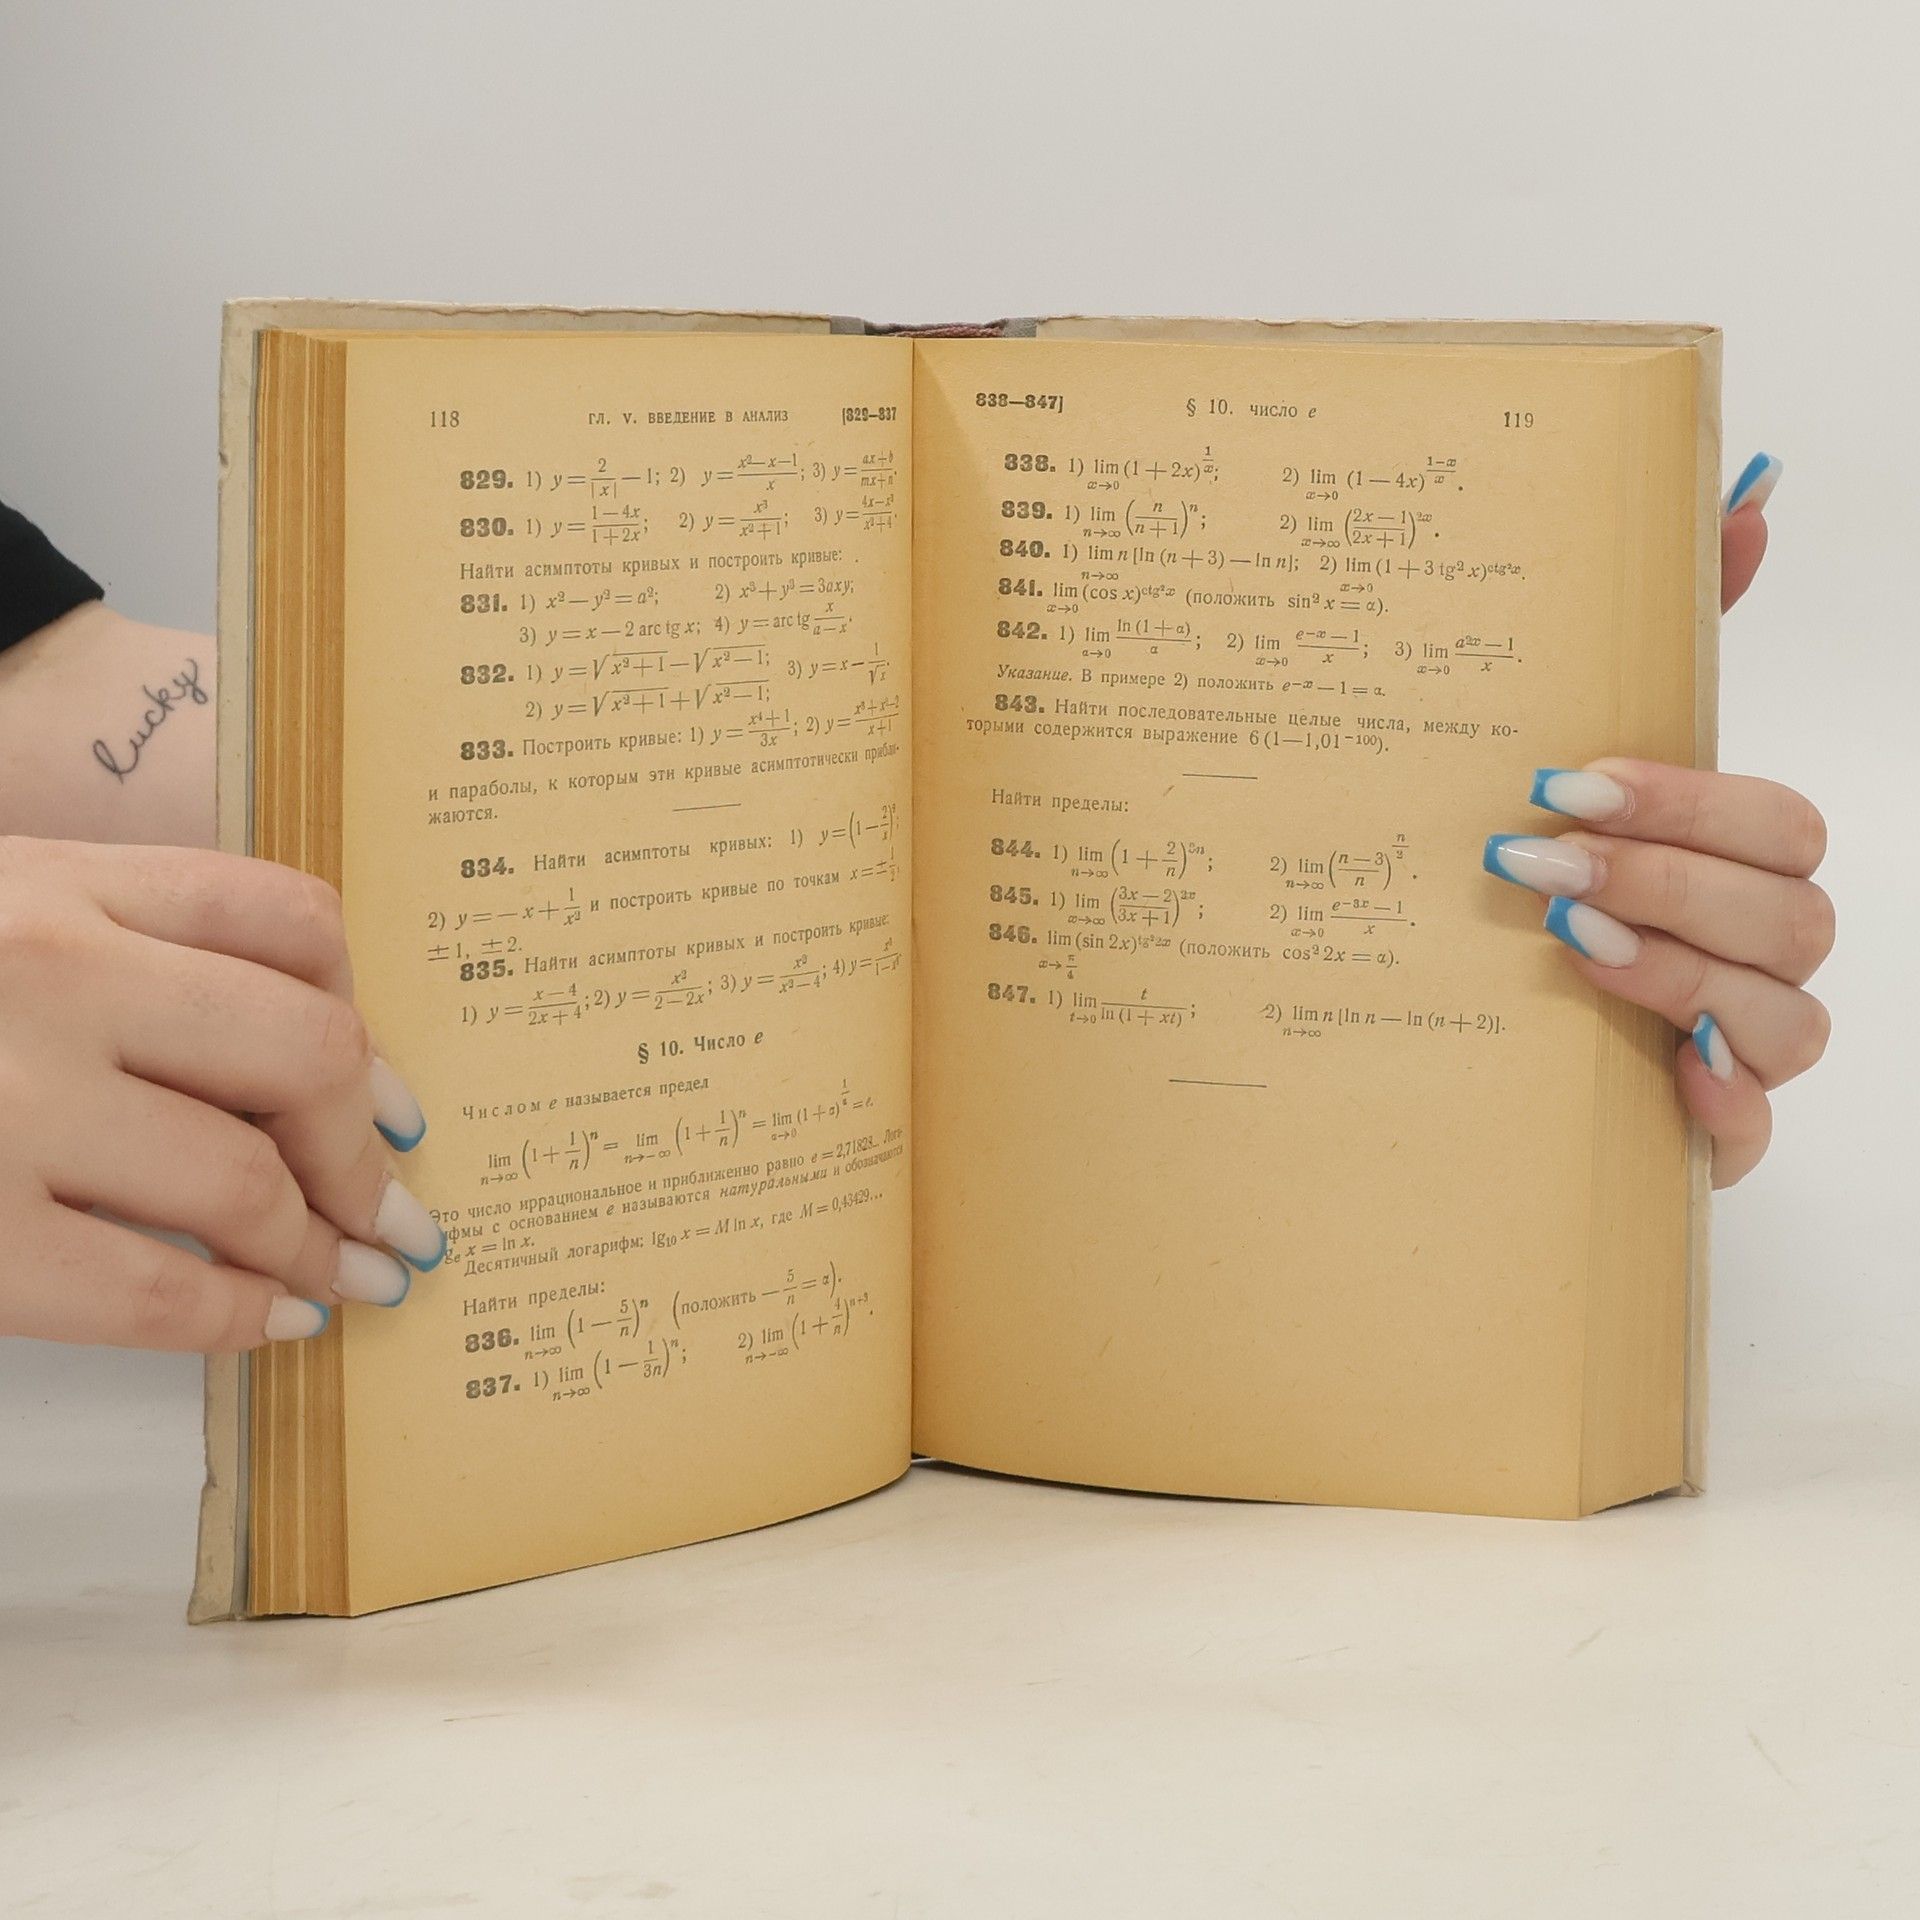 lucky
118 ГЛ. V. ВВЕДЕНИЕ В АНАЛИЗ [829—837
829. 1) y = 2/|x| − 1; 2) y = (x² − x − 1)/x; 3) y = (ax + b)/(mx + n).
830. 1) y = (1 − 4x)/(1 + 2x); 2) y = x³/(x² + 1); 3) y = (4x − x³)/(x² + 4).
Найти асимптоты кривых и построить кривые:
831. 1) x² − y² = a²; 2) x³ + y³ = 3axy;
3) y = x − 2 arc tg x; 4) y = arc tg x/(a − x).
832. 1) y = √(x² + 1) − √(x² − 1); 3) y = x − 1/√x.
2) y = √(x² + 1) + √(x² − 1);
833. Построить кривые: 1) y = (x⁴ + 1)/3x; 2) y =
и параболы, к которым эти кривые асимптотически прибли-
жаются.
834. Найти асимптоты кривых: 1) y = (1 − 2/x)²;
2) y = −x + 1/x² и построить кривые по точкам x = ± 1/2,
± 1, ± 2.
835. Найти асимптоты кривых и построить кривые:
1) y = (x − 4)/(2x + 4); 2) y = x²/(2 − 2x); 3) y = x²/(x² − 4); 4) y =
§ 10. Число e
Числом e называется предел
lim n→∞ (1 + 1/n)ⁿ = lim n→−∞ (1 + 1/n)ⁿ = lim α→0 (1 + α)^(1/α) = e.
Это число иррациональное и приближенно равно e = 2,71828... Лога-
ифмы с основанием e называются натуральными и обозначаются
gₑ x = ln x.
Десятичный логарифм: lg₁₀ x = M ln x, где M = 0,43429...
Найти пределы:
836. lim n→∞ (1 − 5/n)ⁿ (положить − 5/n = α).
837. 1) lim n→∞ (1 − 1/3n)ⁿ; 2) lim n→−∞ (1 + 4/n)ⁿ⁺³.
838—847] § 10. ЧИСЛО e 119
838. 1) lim x→0 (1 + 2x)^(1/x); 2) lim x→0 (1 − 4x)^((1−x)/x).
839. 1) lim n→∞ (n/(n + 1))ⁿ; 2) lim x→∞ ((2x − 1)/(2x + 1))^(2x).
840. 1) lim n→∞ n [ln (n + 3) − ln n]; 2) lim x→0 (1 + 3 tg² x)^(ctg² x).
841. lim x→0 (cos x)^(ctg² x) (положить sin² x = α).
842. 1) lim α→0 ln (1 + α)/α; 2) lim x→0 (e⁻ˣ − 1)/x; 3) lim x→0 (a²ˣ − 1)/x.
Указание. В примере 2) положить e⁻ˣ − 1 = α.
843. Найти последовательные целые числа, между ко-
торыми содержится выражение 6 (1 — 1,01⁻¹⁰⁰).
Найти пределы:
844. 1) lim n→∞ (1 + 2/n)³ⁿ; 2) lim n→∞ ((n − 3)/n)^(n/2).
845. 1) lim x→∞ ((3x − 2)/(3x + 1))²ˣ; 2) lim x→0 (e⁻³ˣ − 1)/x.
846. lim x→π/4 (sin 2x)^(tg² 2x) (положить cos² 2x = α).
847. 1) lim t→0 t/ln (1 + xt); 2) lim n→∞ n [ln n − ln (n + 2)].